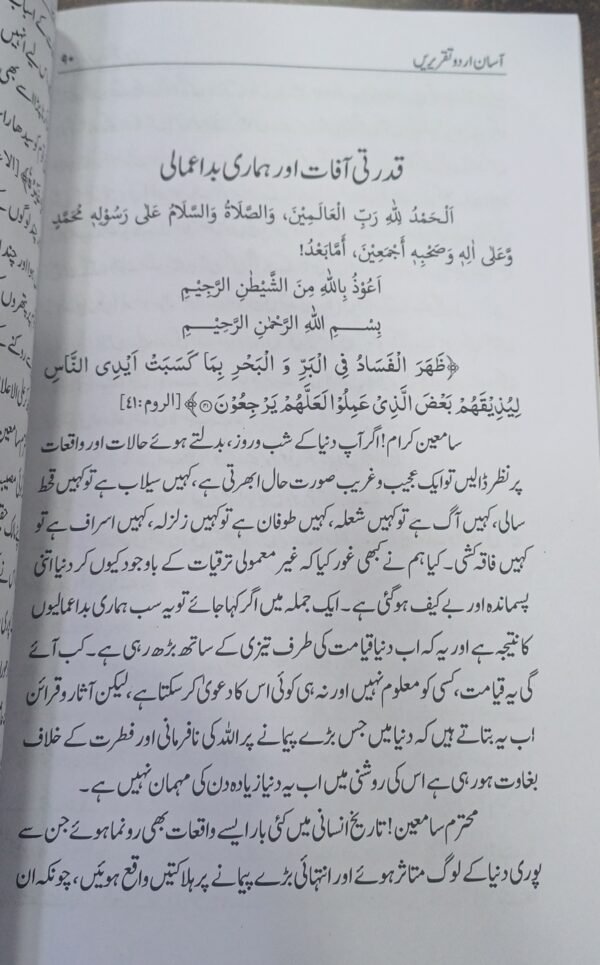 آسان اردو تقریریں
۹۰
قدرتی آفات اور ہماری بداعمالی
اَلْحَمْدُ لِلّٰہِ رَبِّ الْعَالَمِیْنَ، وَالصَّلَاۃُ وَالسَّلَامُ عَلٰی رَسُوْلِہٖ مُحَمَّدٍ
وَّعَلٰی اٰلِہٖ وَصَحْبِہٖ أَجْمَعِیْنَ، أَمَّابَعْدُ!
اَعُوْذُ بِاللّٰہِ مِنَ الشَّیْطٰنِ الرَّجِیْمِ
بِسْمِ اللّٰہِ الرَّحْمٰنِ الرَّحِیْمِ
﴿ظَهَرَ الْفَسَادُ فِی الْبَرِّ وَ الْبَحْرِ بِمَا کَسَبَتْ اَیْدِی النَّاسِ
لِیُذِیْقَهُمْ بَعْضَ الَّذِیْ عَمِلُوْا لَعَلَّهُمْ یَرْجِعُوْنَ﴾ [الروم:۴۱]
سامعین کرام! اگر آپ دنیا کے شب وروز، بدلتے ہوئے حالات اور واقعات
پر نظر ڈالیں تو ایک عجیب وغریب صورت حال ابھرتی ہے، کہیں سیلاب ہے تو کہیں قحط
سالی، کہیں آگ ہے تو کہیں شعلہ، کہیں طوفان ہے تو کہیں زلزلہ، کہیں اسراف ہے تو
کہیں فاقہ کشی۔ کیا ہم نے کبھی غور کیا کہ غیر معمولی ترقیات کے باوجود کیوں کر دنیا اتنی
پسماندہ اور بے کیف ہوگئی ہے۔ ایک جملہ میں اگر کہا جائے تو یہ سب ہماری بداعمالیوں
کا نتیجہ ہے اور یہ کہ اب دنیا قیامت کی طرف تیزی کے ساتھ بڑھ رہی ہے۔ کب آئے
گی یہ قیامت، کسی کو معلوم نہیں اور نہ ہی کوئی اس کا دعویٰ کرسکتا ہے، لیکن آثار وقرائن
اب یہ بتاتے ہیں کہ دنیا میں جس بڑے پیمانے پر اللہ کی نافرمانی اور فطرت کے خلاف
بغاوت ہورہی ہے اس کی روشنی میں اب یہ دنیا زیادہ دن کی مہمان نہیں ہے۔
محترم سامعین! تاریخ انسانی میں کئی بار ایسے واقعات بھی رونما ہوئے جن سے
پوری دنیا کے لوگ متاثر ہوئے اور انتہائی بڑے پیمانے پر ہلاکتیں واقع ہوئیں، چونکہ ان